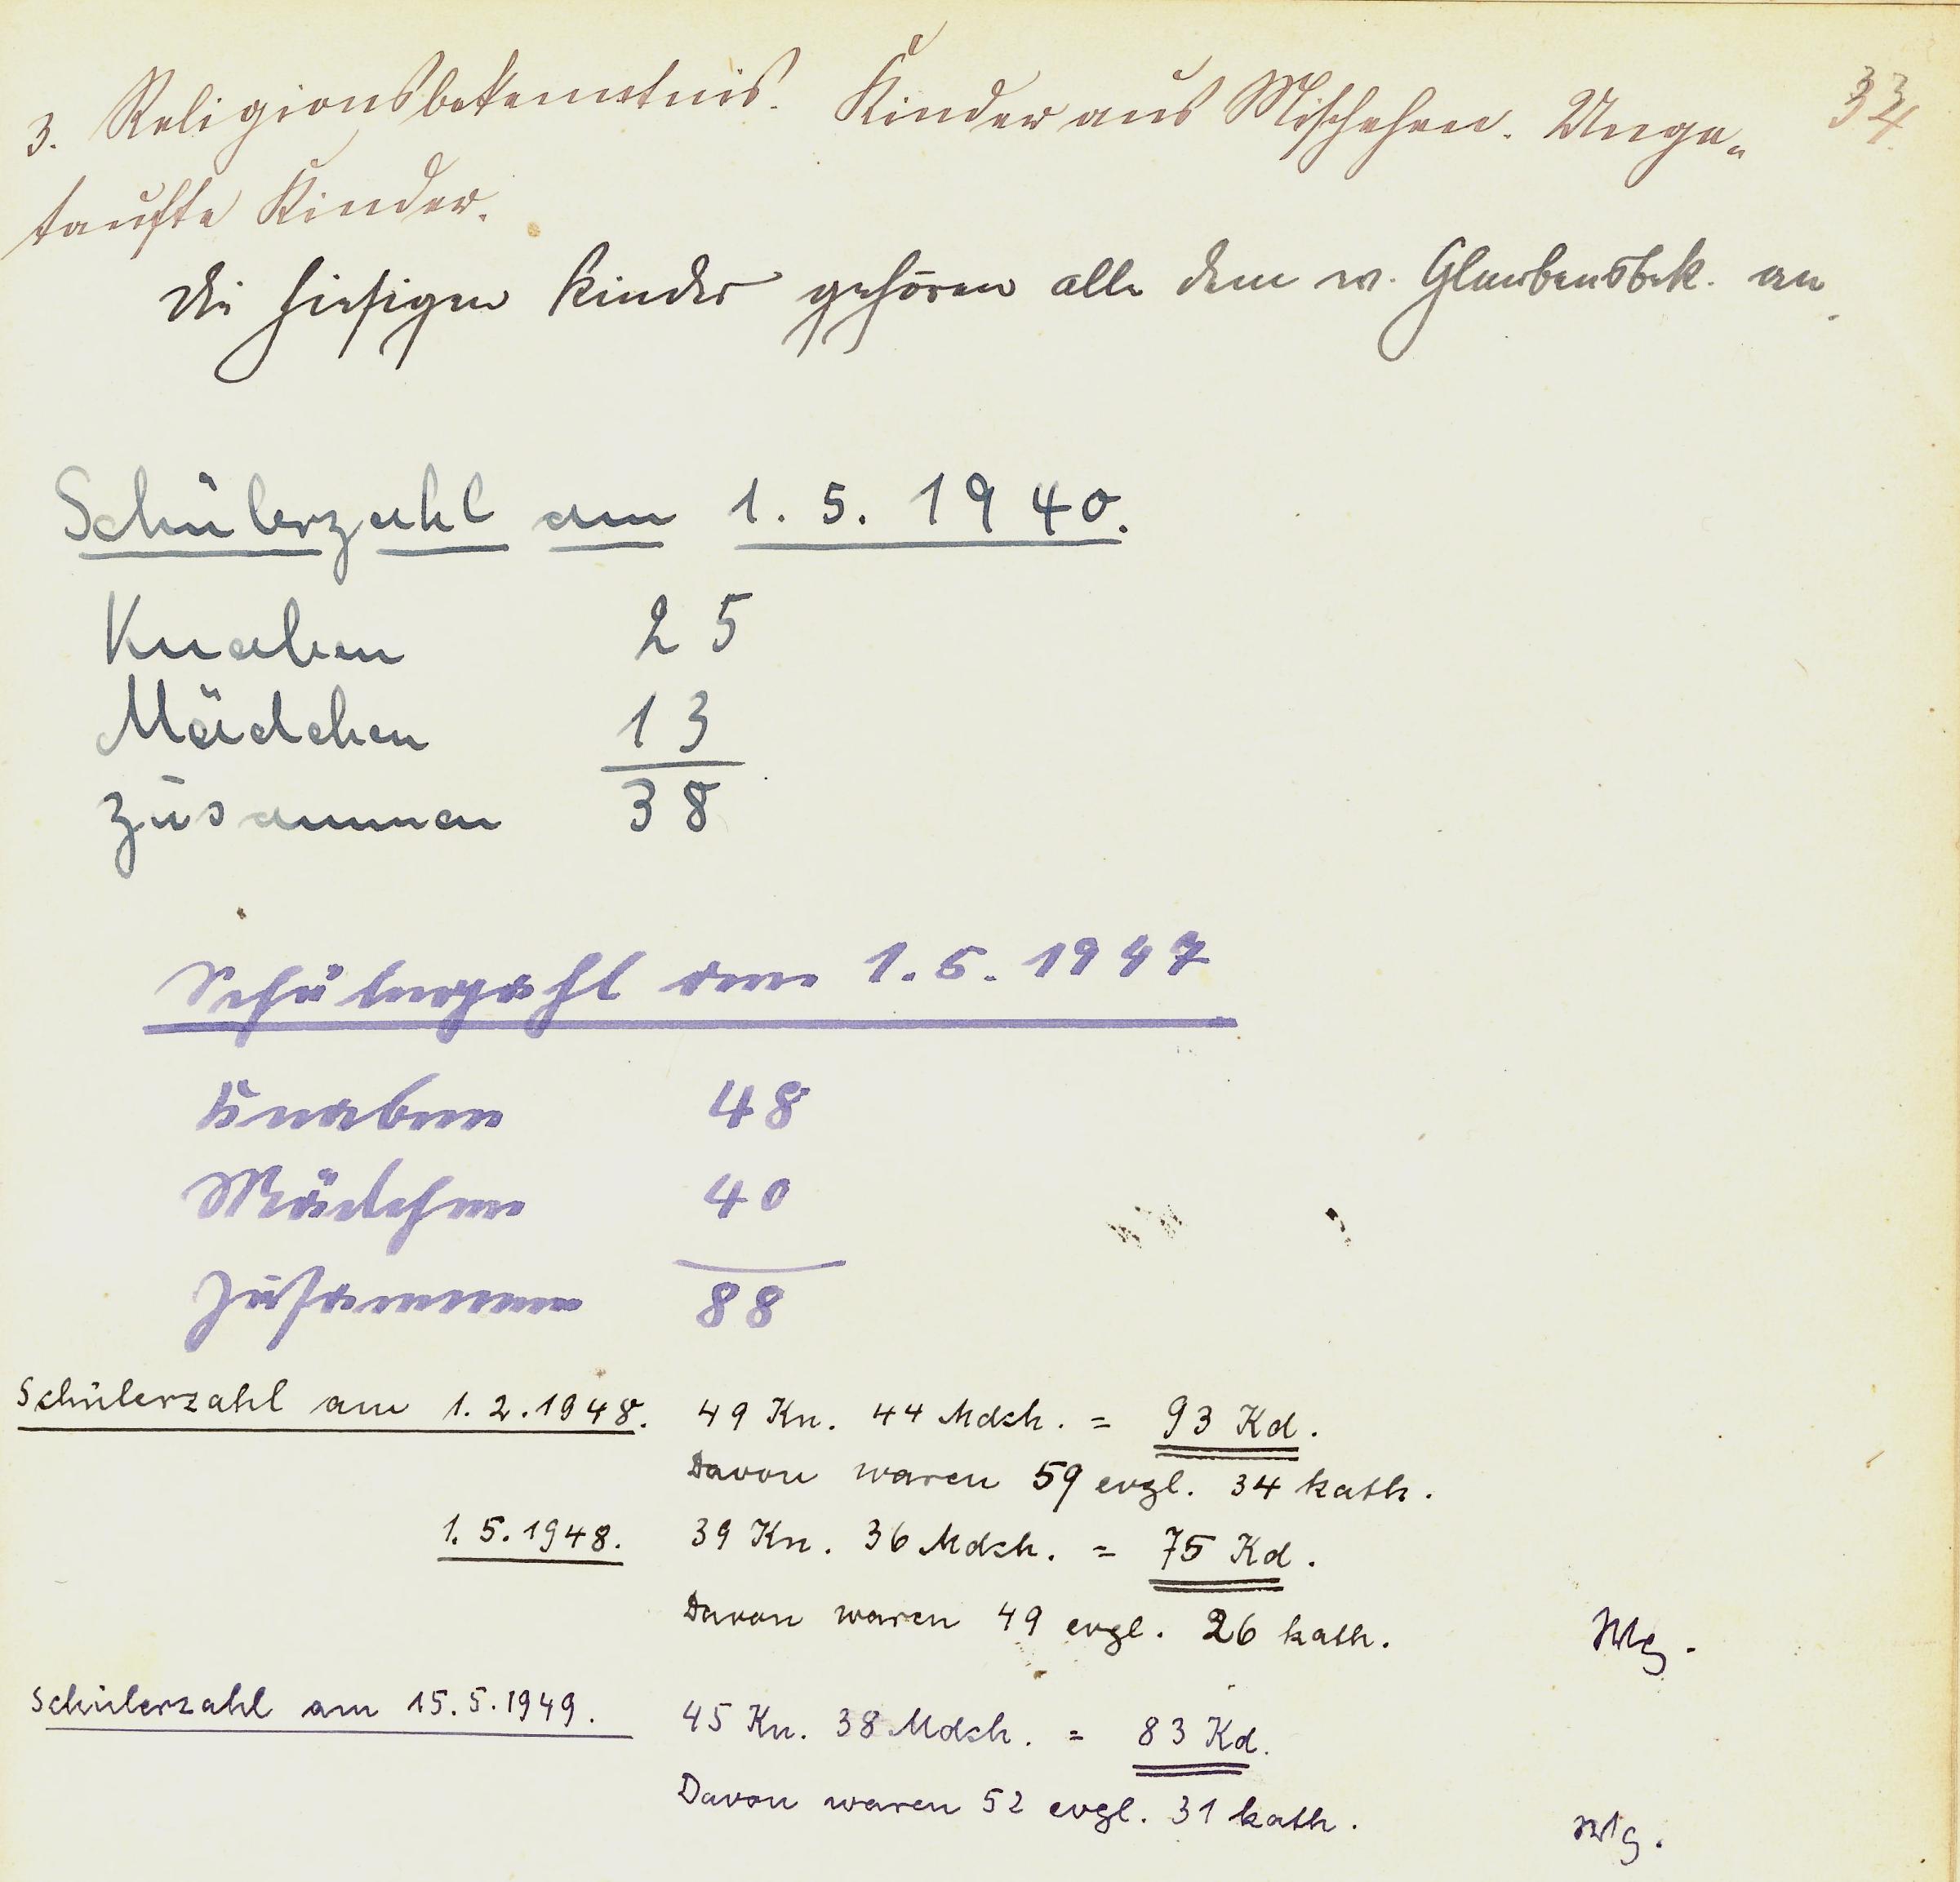 3. Religionsbekenntnis. Kinder aus Mischehen. Unge-
taufte Kinder.
Die hiesigen Kinder gehören alle dem Glaubensbek. an.
Schülerzahl am 1.5.1940.
Knaben 25
Mädchen 13
Zusammen 38
Schülerzahl am 1.5.1947
Knaben 48
Mädchen 40
Zusammen 88
Schülerzahl am 1.2.1948. 49 Kn. 44 Mdch. = 93 Kd.
Davon waren 59 evgl. 34 kath.
1.5.1948. 39 Kn. 36 Mdch. = 75 Kd.
Davon waren 49 evgl. 26 kath.
Schülerzahl am 15.5.1949. 45 Kn. 38 Mdch. = 83 Kd.
Davon waren 52 evgl. 31 kath.